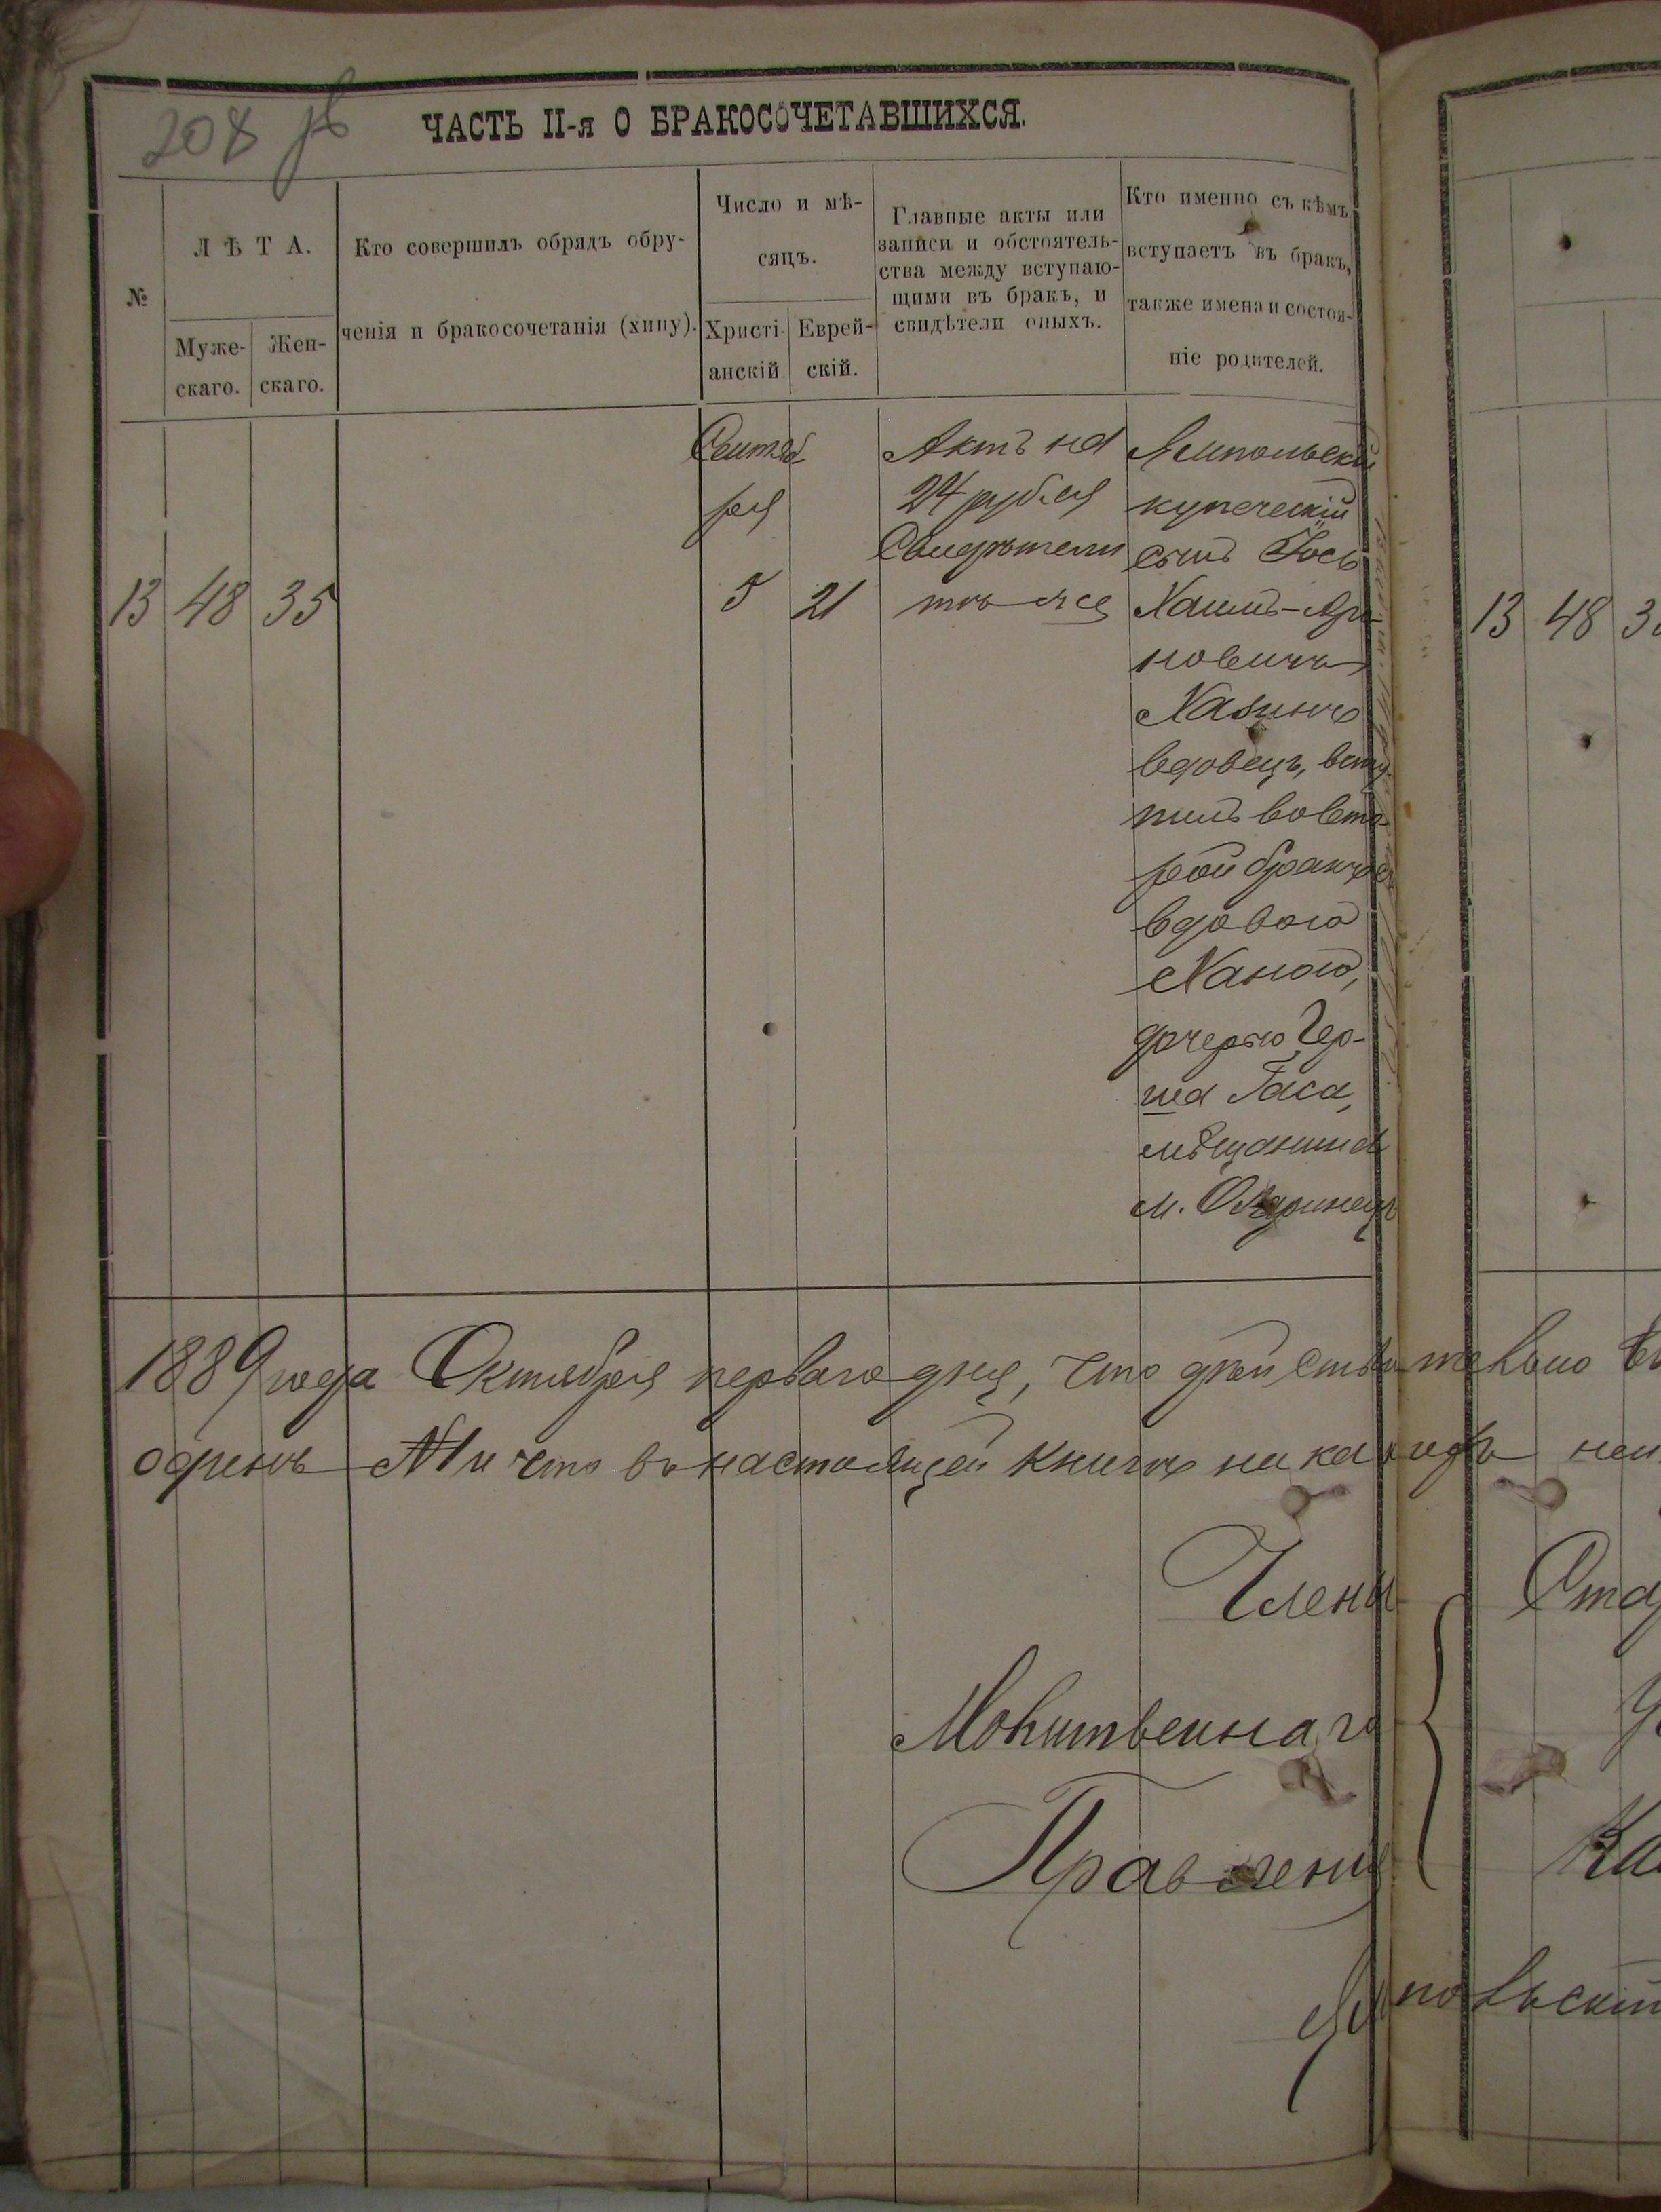 208
ЧАСТЬ II-я О БРАКОСОЧЕТАВШИХСЯ.
№
ЛѢТА.
Муже-
скаго.
Жен-
скаго.
Кто совершилъ обрядъ обру-
ченія и бракосочетанія (хипу).
Число и мѣ-
сяцъ.
Христі-
анскій
Еврей-
скій.
Главные акты или
записи и обстоятель-
ства между вступаю-
щими въ бракъ, и
свидѣтели оныхъ.
Кто именно съ кѣмъ
вступаетъ въ бракъ,
также имена и состоя-
ніе родителей.
13 48 35
Сентяб
ря
5 21
Актъ на
24 рубля
Свидѣтели
тѣ же
Ямпольскій
купеческій
сынъ Іось
Хаимъ-Аро
новичъ
Хазинъ
вдовецъ, всту
пилъ во вто
рой бракъ съ
вдовою
Ханою,
дочерью Гер-
ша Гаса,
мѣщанина
м.
13 48 3
1889 года Октября перваго дня, что дѣйствительно
одинъ № и что въ настоящей книгѣ никакихъ
Члены
Молитвеннаго
Правленія